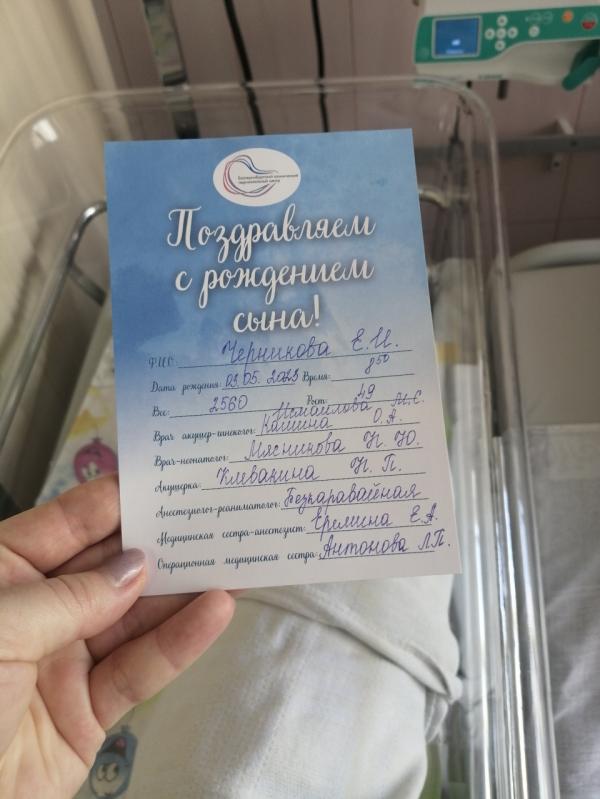 Екатеринбургский клинический
перинатальный центр
Поздравляем
с рождением
сына!
ФИО: Черникова Е.И.
Дата рождения: 03.05.2023 Время: 8⁵⁰
Вес: 2560 Рост: 49
Исмаилова М.С.
Врач акушер-гинеколог: Кашина О.А.
Врач-неонатолог: Мясникова Н.Ю.
Акушерка: Клевакина Н.П.
Анестезиолог-реаниматолог: Безкаравайная
Медицинская сестра-анестезист: Еремина Е.А.
Операционная медицинская сестра: Антонова Л.П.